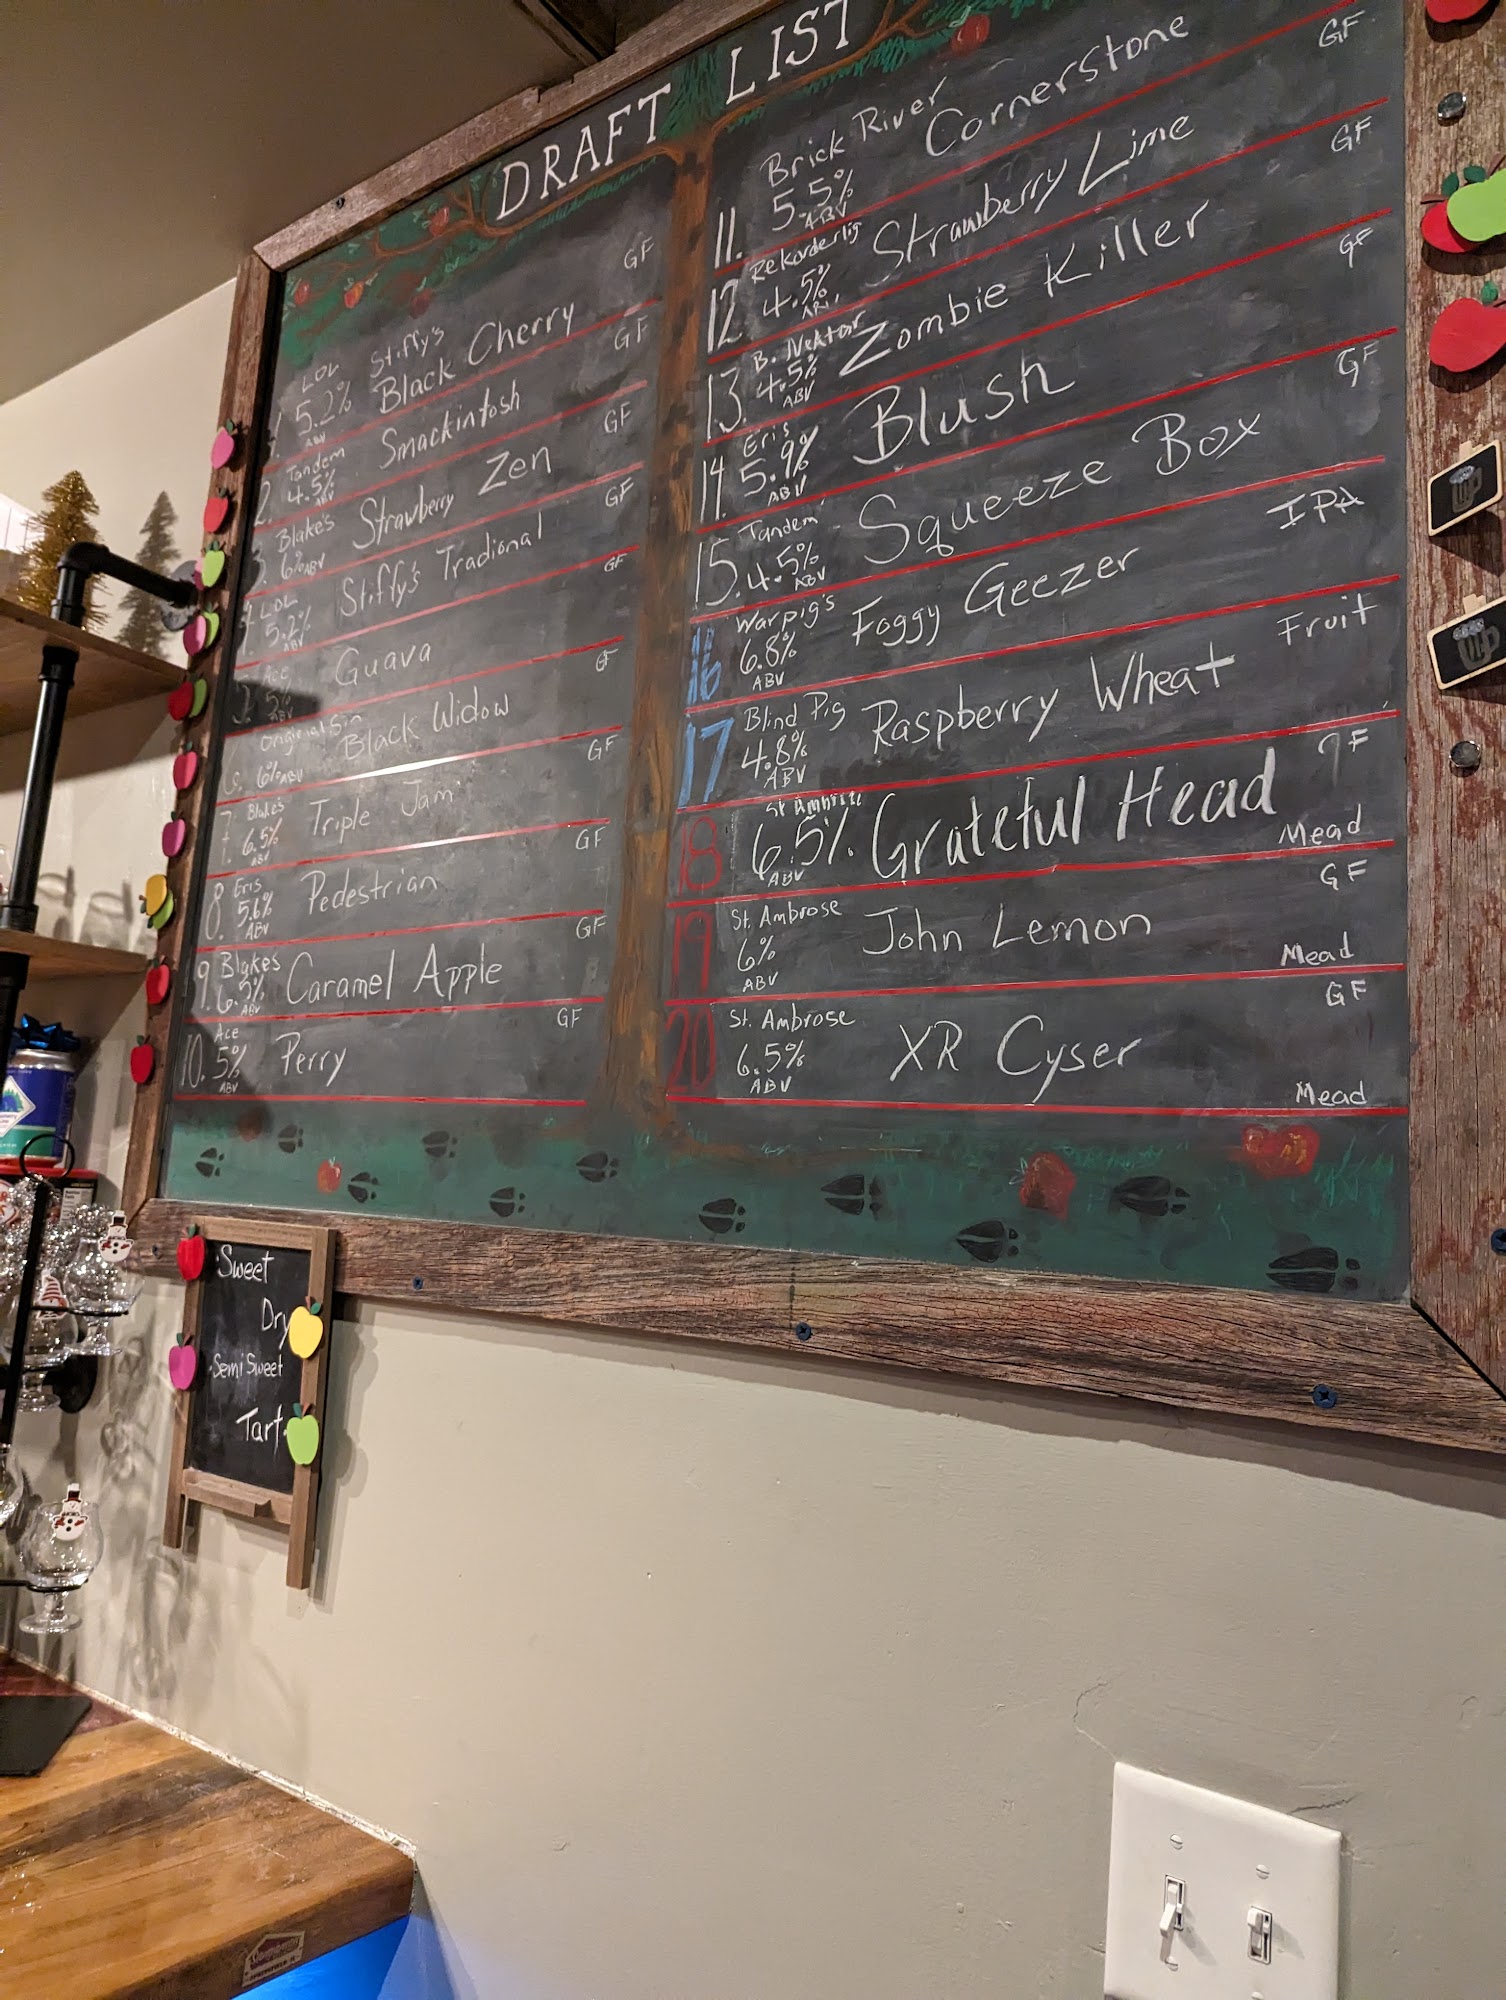 DRAFT LIST
1. LOL Stiffy's GF
5.2% Black Cherry
ABV
2. Tandem Smackintosh GF
4.5%
ABV
3. Blake's Strawberry Zen GF
6% ABV
4. LOL Stiffy's Tradional GF
5.2%
ABV
Ace Guava GF
5%
Original Sin Black Widow GF
6% ABV
7. Blake's Triple Jam GF
6.5%
ABV
8. Eris Pedestrian GF
5.6%
ABV
9. Blake's Caramel Apple GF
6.5%
ABV
10. Ace Perry GF
5%
ABV
11. Brick River Cornerstone GF
5.5%
ABV
12. Rekorderlig Strawberry Lime GF
4.5%
13. B. Nektar Zombie Killer GF
4.5%
ABV
14. Eris Blush GF
5.9%
ABV
15. Tandem Squeeze Box
4.5%
ABV
16 Warpig's Foggy Geezer IPA
6.8%
ABV
17 Blind Pig Raspberry Wheat Fruit
4.8%
ABV
18 St Grateful Head GF
6.5% Mead
ABV
19 St. Ambrose John Lemon GF
6% Mead
ABV
20 St. Ambrose XR Cyser GF
6.5% Mead
ABV
Sweet
Dry
Semi Sweet
Tart